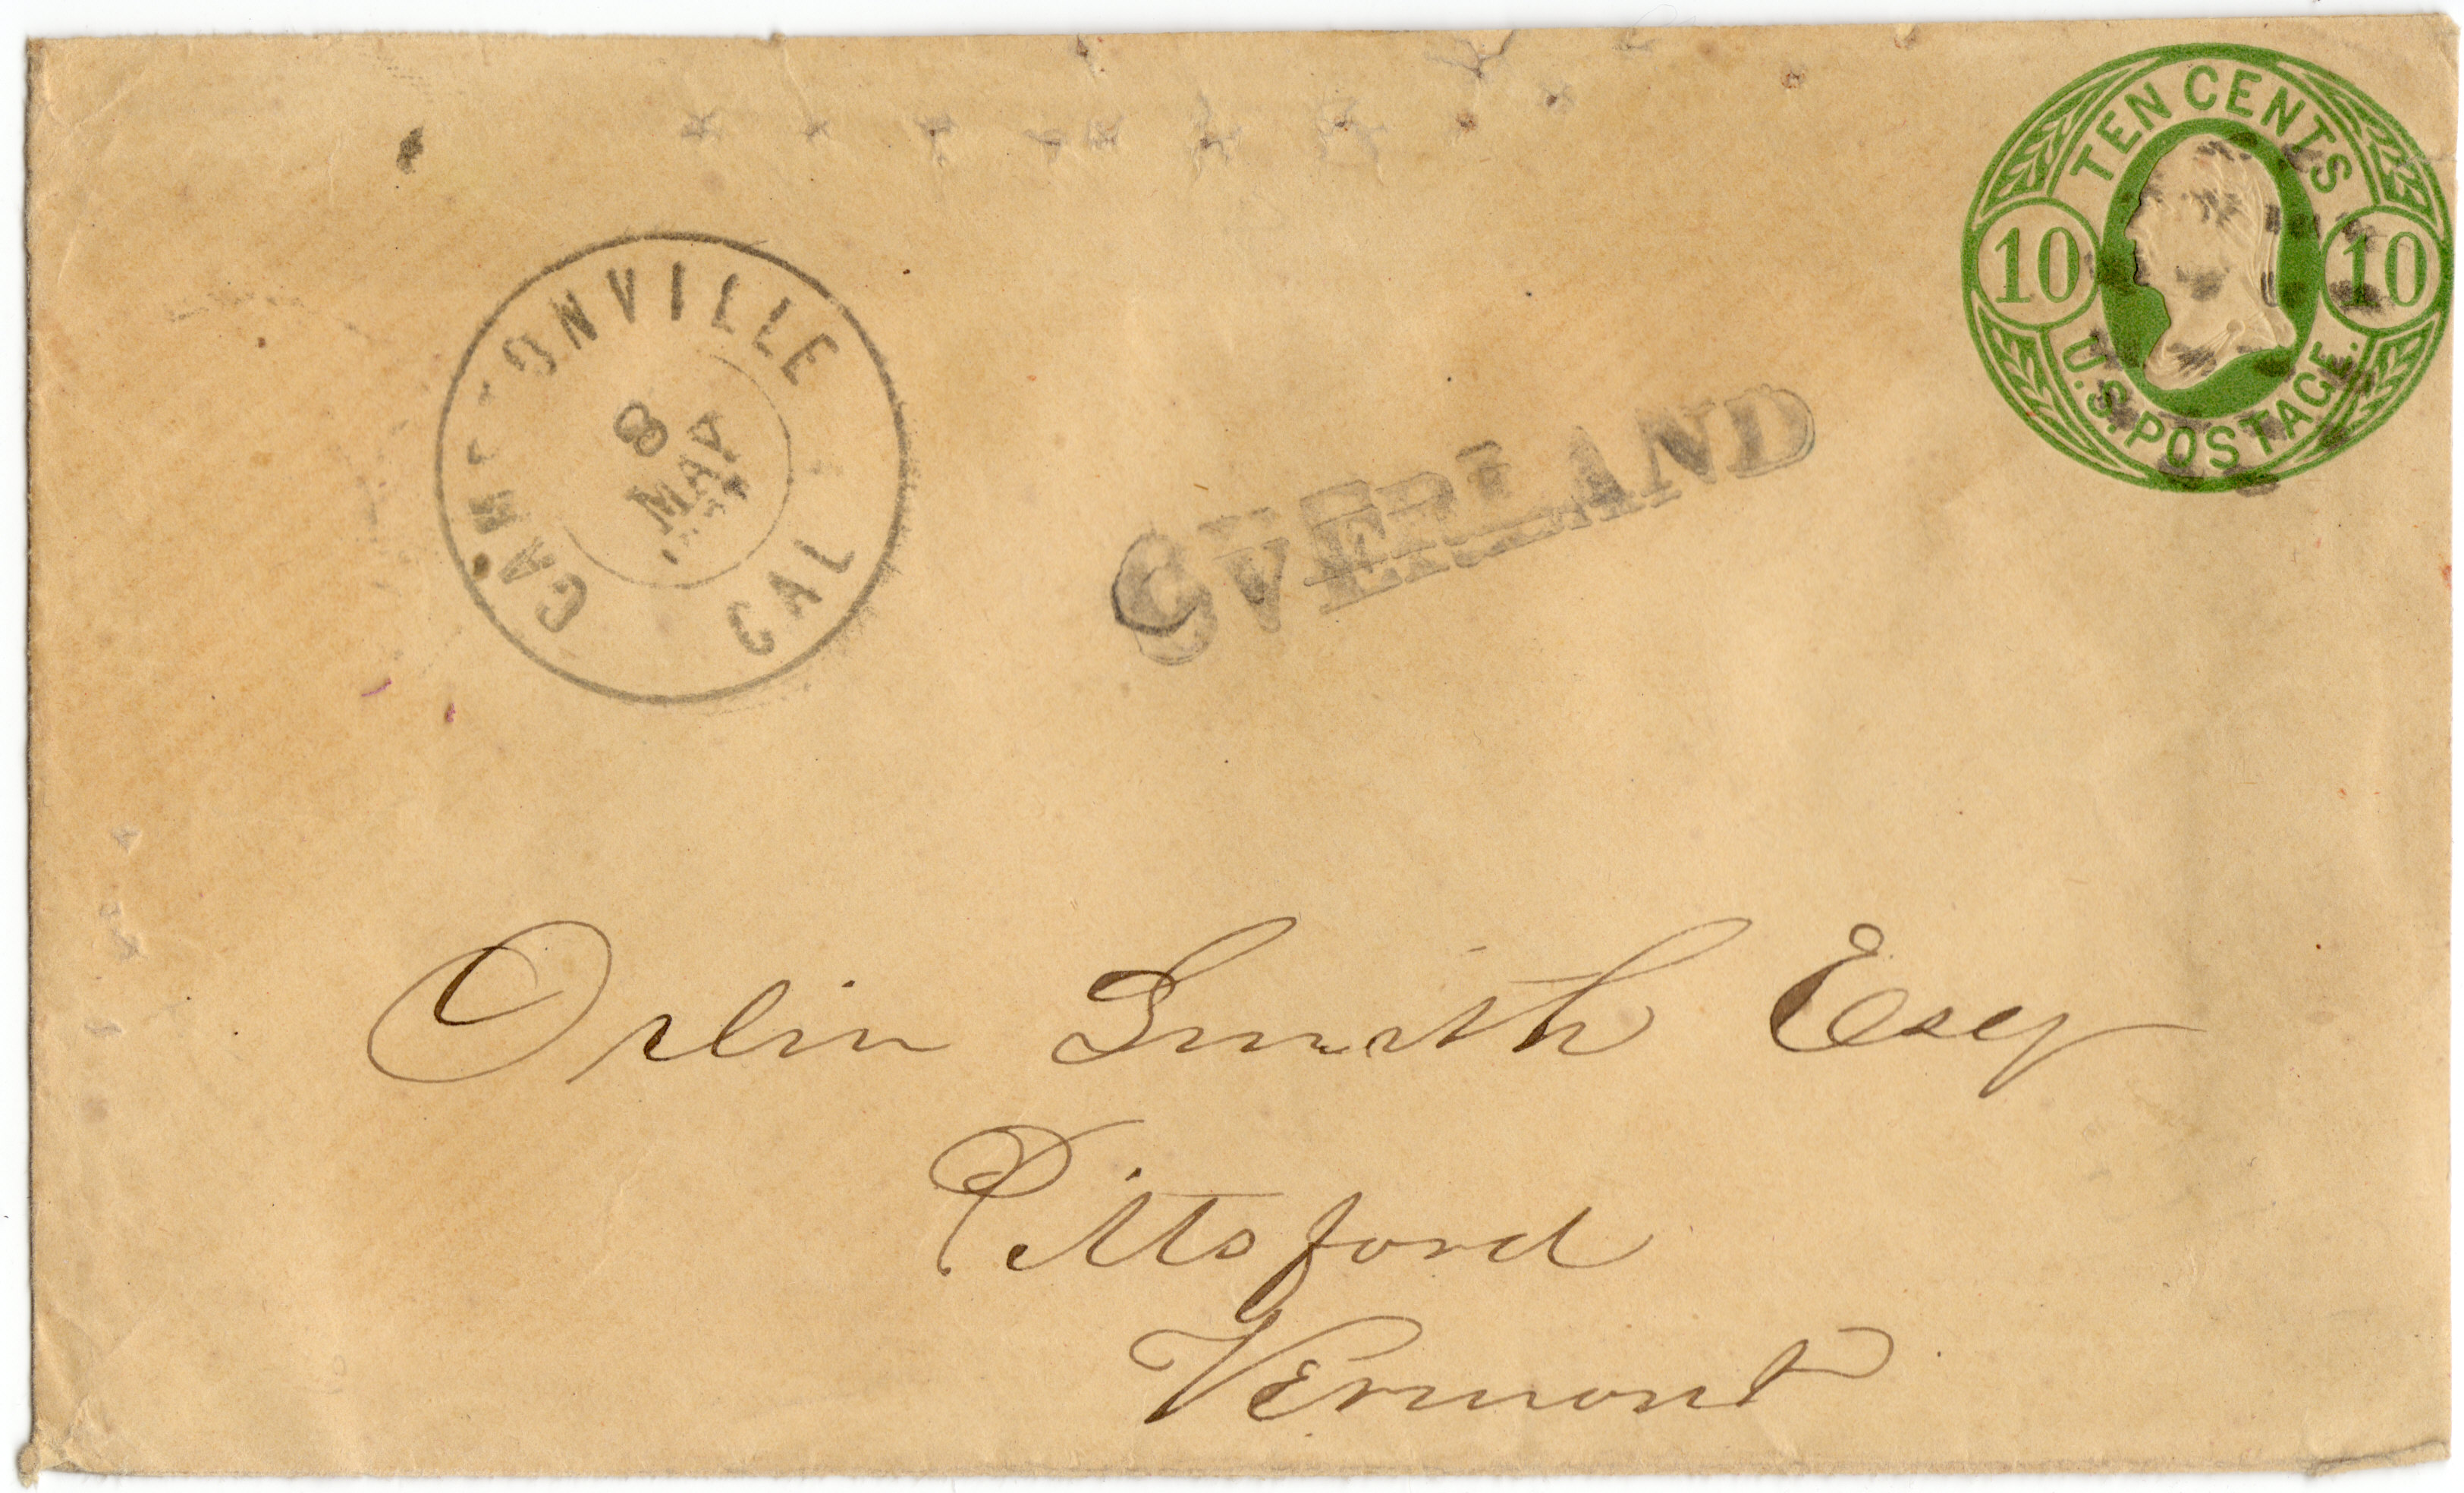 TEN CENTS
10 10
U.S. POSTAGE.
CAMPTONVILLE
8
MAY
CAL
OVERLAND
Orlin Smith Esq
Pittsford
Vermont